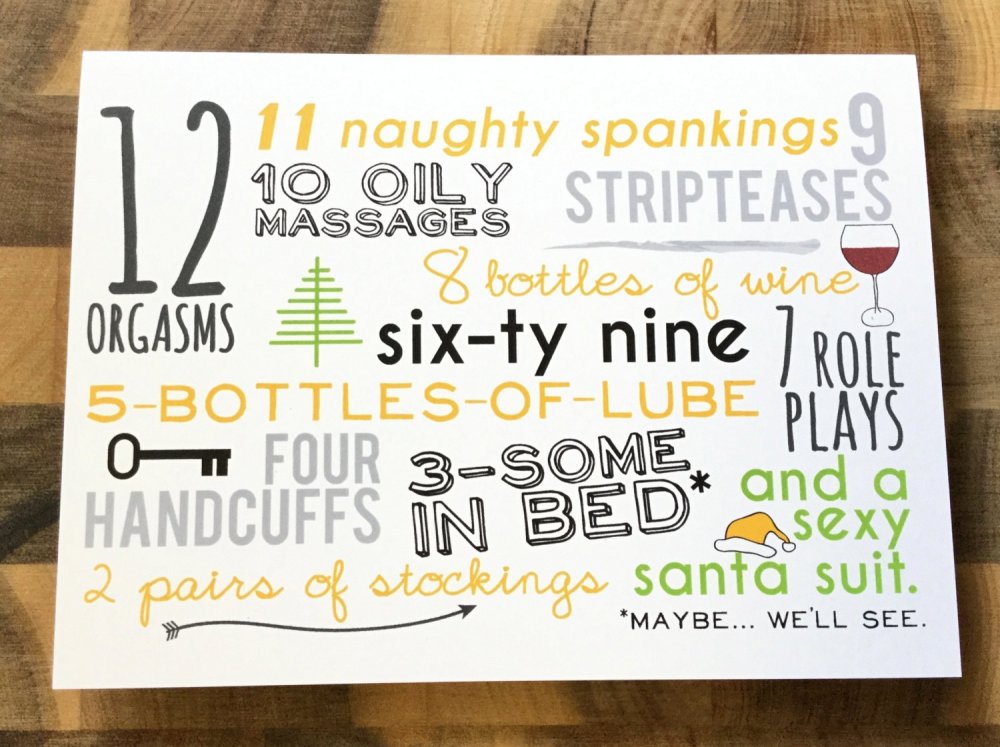 12
ORGASMS
11 naughty spankings
10 OILY
MASSAGES
9
STRIPTEASES
8 bottles of wine
7 ROLE
PLAYS
six-ty nine
5-BOTTLES-OF-LUBE
FOUR
HANDCUFFS
3-SOME
IN BED*
2 pairs of stockings
and a
sexy
santa suit.
*MAYBE... WE'LL SEE.